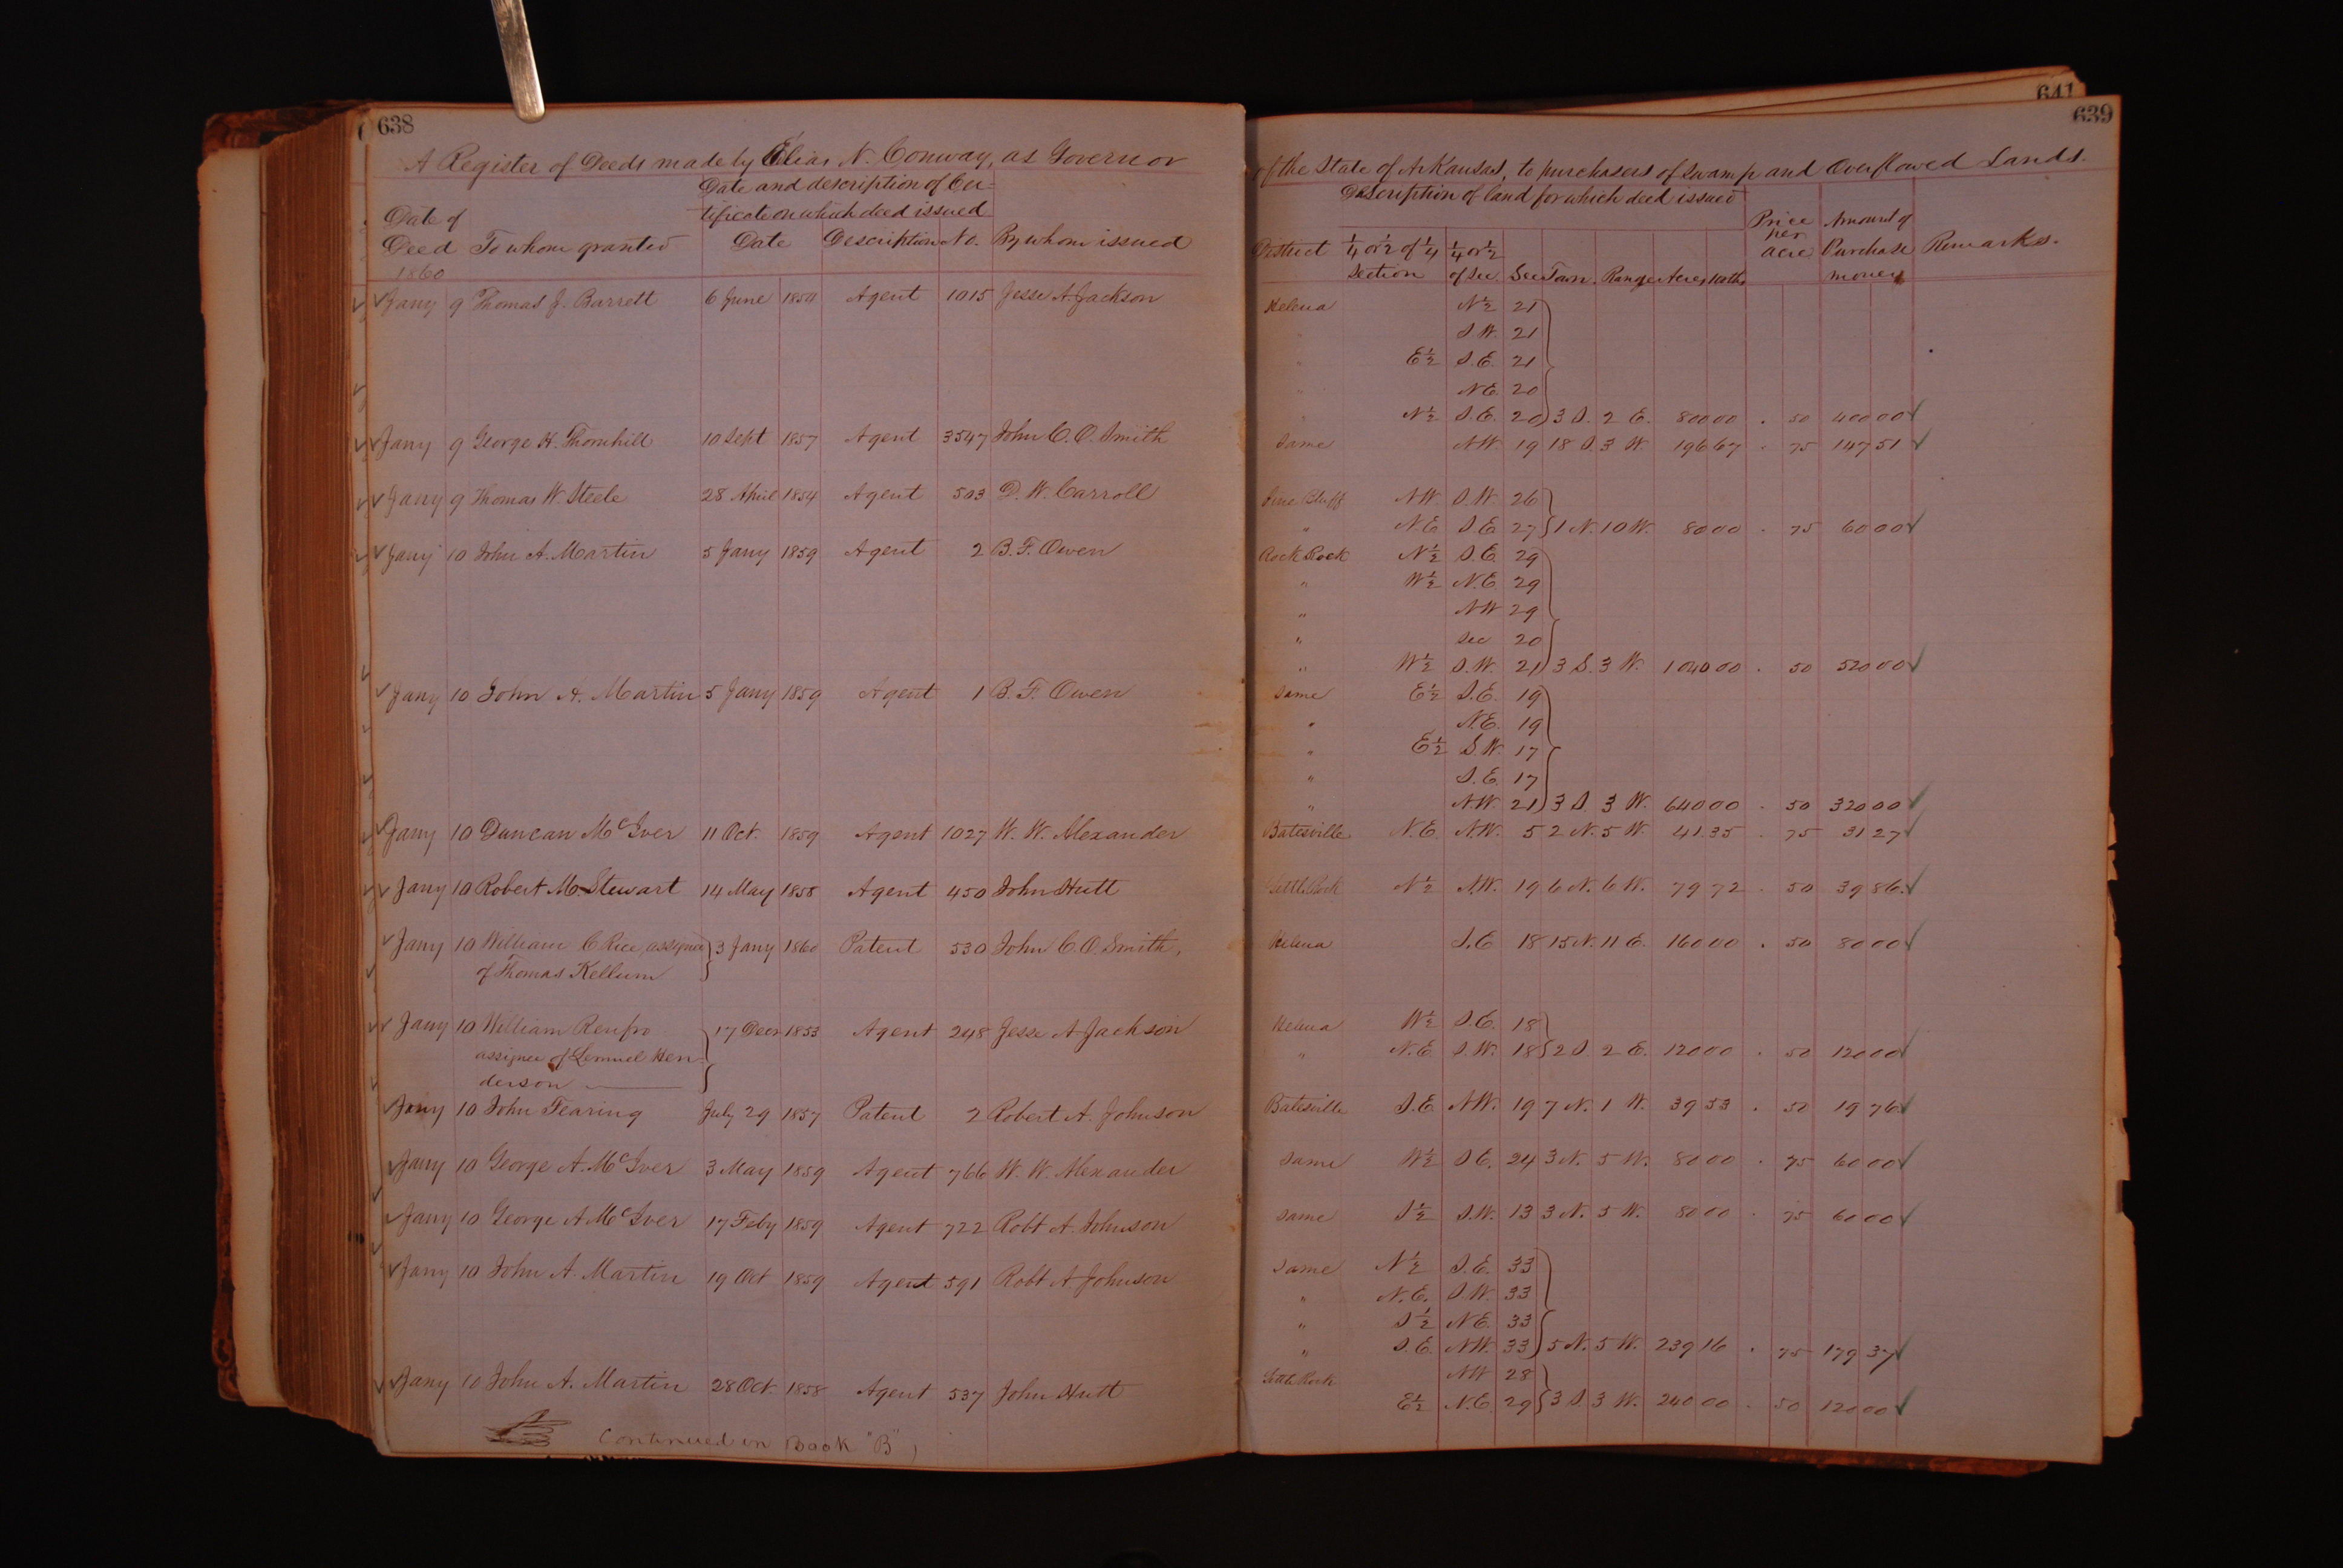 638
A Register of Deeds made by Elias N. Conway, as Governor
Date and description of Cer=
tificate on which deed issued
Date of
Deed To whom granted Date Description No. By whom issued
1860
Jany 9 Thomas J. Barrett 6 June Agent 1015 Jesse A. Jackson
Jany 9 George H. Thornhill 10 Sept 1857 Agent 3547 John C. O. Smith
Jany 9 Thomas W. Steele 28 April 1854 Agent 503 D. W. Carroll
Jany 10 John A. Martin 5 Jany 1859 Agent 2 B. F. Owen
Jany 10 John A. Martin 5 Jany 1859 Agent 1 B. F. Owen
Jany 10 Duncan McIver 11 Oct. 1859 Agent 1027 W. W. Alexander
Jany 10 Robert M. Stewart 14 May 1858 Agent 450 John Hutt
Jany 10 William C Rice, assignee 3 Jany 1860 Patent 530 John C. O. Smith,
of Thomas Kellum
Jany 10 William Renfro 17 Decr 1853 Agent 248 Jesse A Jackson
assignee of Lemuel Hen-
derson
Jany 10 John Fearing July 29 1857 Patent 2 Robert A. Johnson
Jany 10 George A. McIver 3 May 1859 Agent 766 W. W. Alexander
Jany 10 George A McIver 17 Feby 1859 Agent 722 Robt A. Johnson
Jany 10 John A. Martin 19 Oct 1859 Agent 591 Robt A. Johnson
Jany 10 John A. Martin 28 Oct. 1858 Agent 537 John Hutt
Continued in Book "B"
641
639
of the State of Arkansas, to purchasers of Swamp and Overflowed Lands.
Description of land for which deed issued
District 1/4 or 1/2 of 1/4 Section 1/4 or 1/2 of Sec. Sec Town. Range Acres 100ths Price per acre Amount of Purchase money Remarks.
Helena N 1/2 21
" S. W. 21
" E 1/2 S. E. 21
" N E 20
" N 1/2 S. E. 20 3 S. 2 E. 800 00 . 50 400 00
Same N W. 19 18 S. 3 W. 196 67 . 75 147 51
Pine Bluff N W. S. W. 26
" N. E S. E 27 1 N. 10 W. 80 00 . 75 60 00
Rock Rock N 1/2 S. E. 29
" W 1/2 N. E 29
" N W 29
" Sec 20
" W 1/2 S. W. 21 3 S. 3 W. 1040 00 . 50 520 00
Same E 1/2 S. E. 19
" N. E. 19
" E 1/2 S W. 17
" S. E. 17
" N. W. 21 3 S. 3 W. 640 00 . 50 320 00
Batesville N. E. N. W. 5 2 N. 5 W. 41.35 . 75 31 27
Little Rock N 1/2 N. W. 19 6 N. 6 W. 79 72 . 50 39 86
Helena S. E 18 15 N. 11 E. 160 00 . 50 80 00
Helena W 1/2 S. E. 18
" N. E S. W. 18 2 S. 2 E. 120 00 . 50 120 00
Batesville S. E. N W. 19 7 N. 1 W. 39 53 . 50 19 76
Same W 1/2 S E. 24 3 N. 5 W. 80 00 . 75 60 00
Same S 1/2 S. W. 13 3 N. 5 W. 80 00 . 75 60 00
Same N 1/2 S. E. 33
" N. E. S. W. 33
" S 1/2 N E. 33
" S. E. N W. 33 5 N. 5 W. 239 16 . 75 179 37
Little Rock N W 28
E 1/2 N. E. 29 3 S. 3 W. 240 00 . 50 120 00